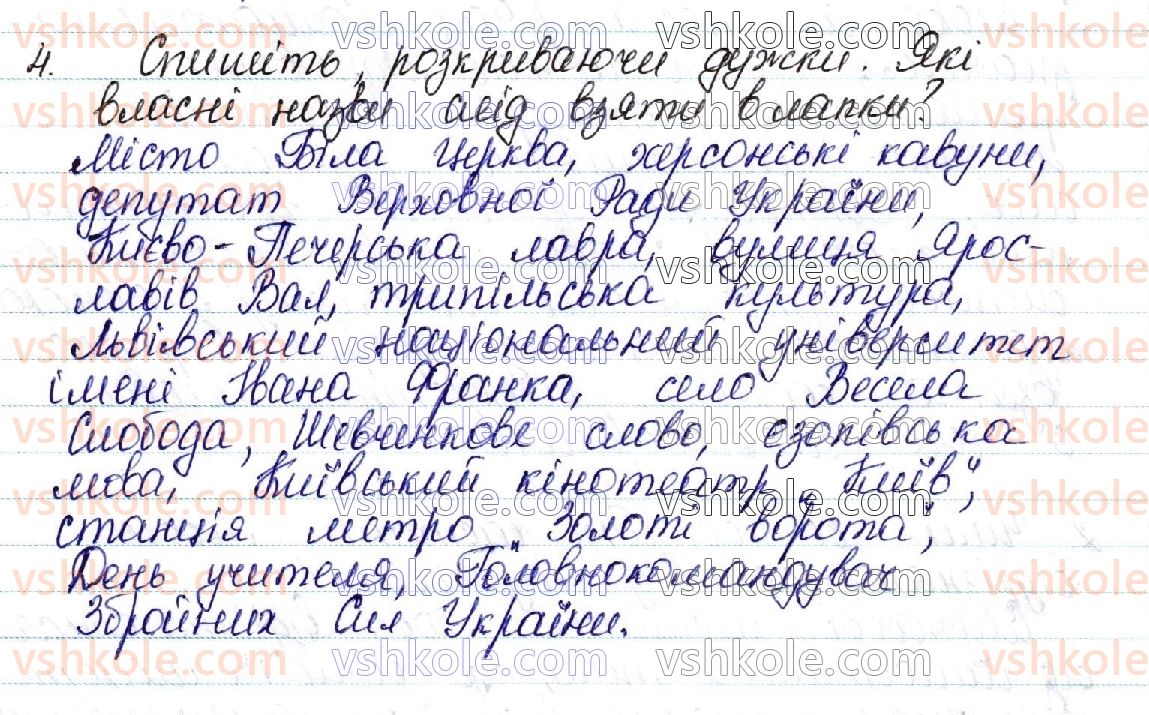 4. Спишіть, розкриваючи дужки. Які
власні назви слід взяти в лапки?
Місто Біла Церква, херсонські кавуни,
депутат Верховної Ради України,
Києво-Печерська лавра, вулиця Ярос-
лавів Вал, трипільська культура,
Львівський національний університет
імені Івана Франка, село Весела
Слобода, Шевченкове слово, езопівська
мова, Київський кінотеатр „Київ",
станція метро „Золоті ворота",
День учителя, Головнокомандувач
Збройних Сил України.